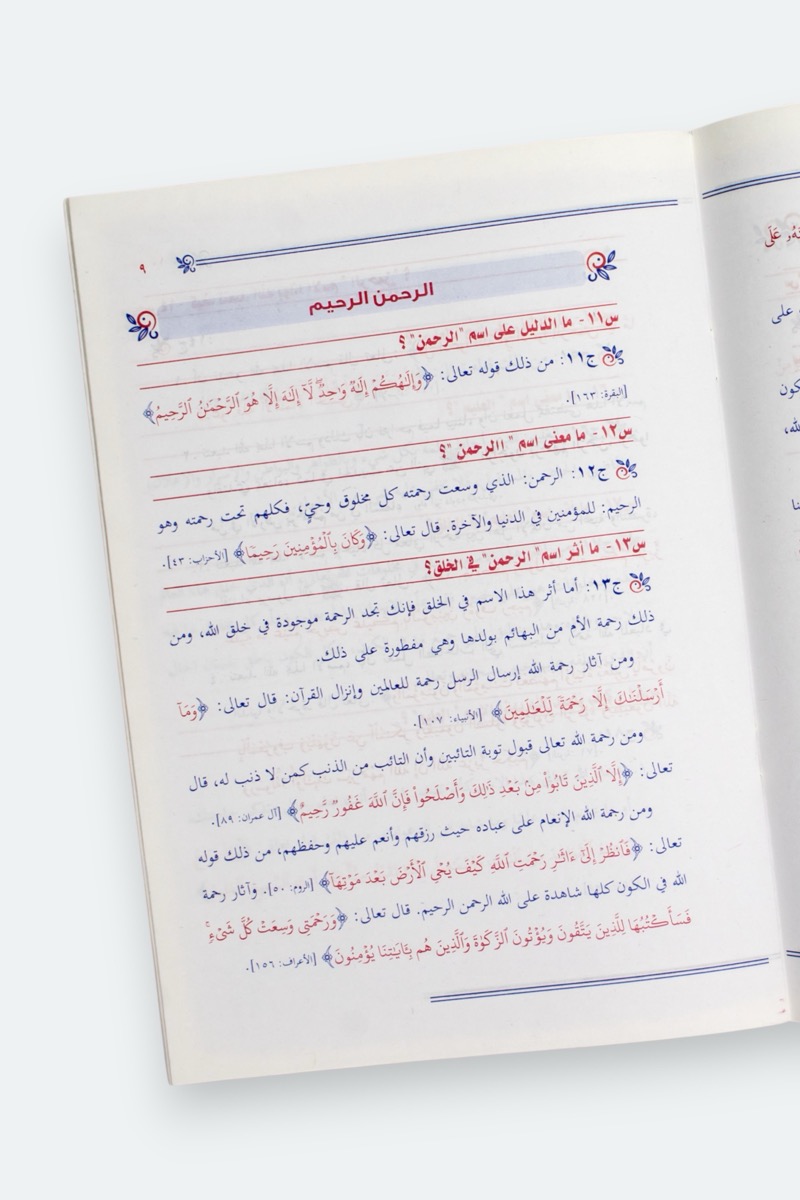 ٩
الرحمن الرحيم
س١١- ما الدليل على اسم "الرحمن" ؟
ج١١: من ذلك قوله تعالى: ﴿وَإِلَٰهُكُمْ إِلَٰهٌ وَٰحِدٌ ۖ لَّآ إِلَٰهَ إِلَّا هُوَ ٱلرَّحْمَٰنُ ٱلرَّحِيمُ﴾
[البقرة: ١٦٣].
س١٢- ما معنى اسم " االرحمن "؟
ج١٢: الرحمن: الذي وسعت رحمته كل مخلوق وحيٍّ، فكلهم تحت رحمته وهو
الرحيم: للمؤمنين في الدنيا والآخرة. قال تعالى: ﴿وَكَانَ بِٱلْمُؤْمِنِينَ رَحِيمًا﴾ [الأحزاب: ٤٣].
س١٣- ما أثر اسم" الرحمن" في الخلق؟
ج١٣: أما أثر هذا الاسم في الخلق فإنك تجد الرحمة موجودة في خلق الله، ومن
ذلك رحمة الأم من البهائم بولدها وهي مفطورة على ذلك.
ومن آثار رحمة الله إرسال الرسل رحمة للعالمين وإنزال القرآن: قال تعالى: ﴿وَمَآ
أَرْسَلْنَٰكَ إِلَّا رَحْمَةً لِّلْعَٰلَمِينَ﴾ [الأنبياء: ١٠٧].
ومن رحمة الله تعالى قبول توبة التائبين وأن التائب من الذنب كمن لا ذنب له، قال
تعالى: ﴿إِلَّا ٱلَّذِينَ تَابُوا۟ مِنۢ بَعْدِ ذَٰلِكَ وَأَصْلَحُوا۟ فَإِنَّ ٱللَّهَ غَفُورٌ رَّحِيمٌ﴾ [آل عمران: ٨٩].
ومن رحمة الله الإنعام على عباده حيث رزقهم وأنعم عليهم وحفظهم، من ذلك قوله
تعالى: ﴿فَٱنظُرْ إِلَىٰٓ ءَاثَٰرِ رَحْمَتِ ٱللَّهِ كَيْفَ يُحْىِ ٱلْأَرْضَ بَعْدَ مَوْتِهَآ﴾ [الروم: ٥٠]. وآثار رحمة
الله في الكون كلها شاهدة على الله الرحمن الرحيم. قال تعالى: ﴿وَرَحْمَتِى وَسِعَتْ كُلَّ شَىْءٍ ۚ
فَسَأَكْتُبُهَا لِلَّذِينَ يَتَّقُونَ وَيُؤْتُونَ ٱلزَّكَوٰةَ وَٱلَّذِينَ هُم بِـَٔايَٰتِنَا يُؤْمِنُونَ﴾ [الأعراف: ١٥٦].
عَلَى
على
الله،